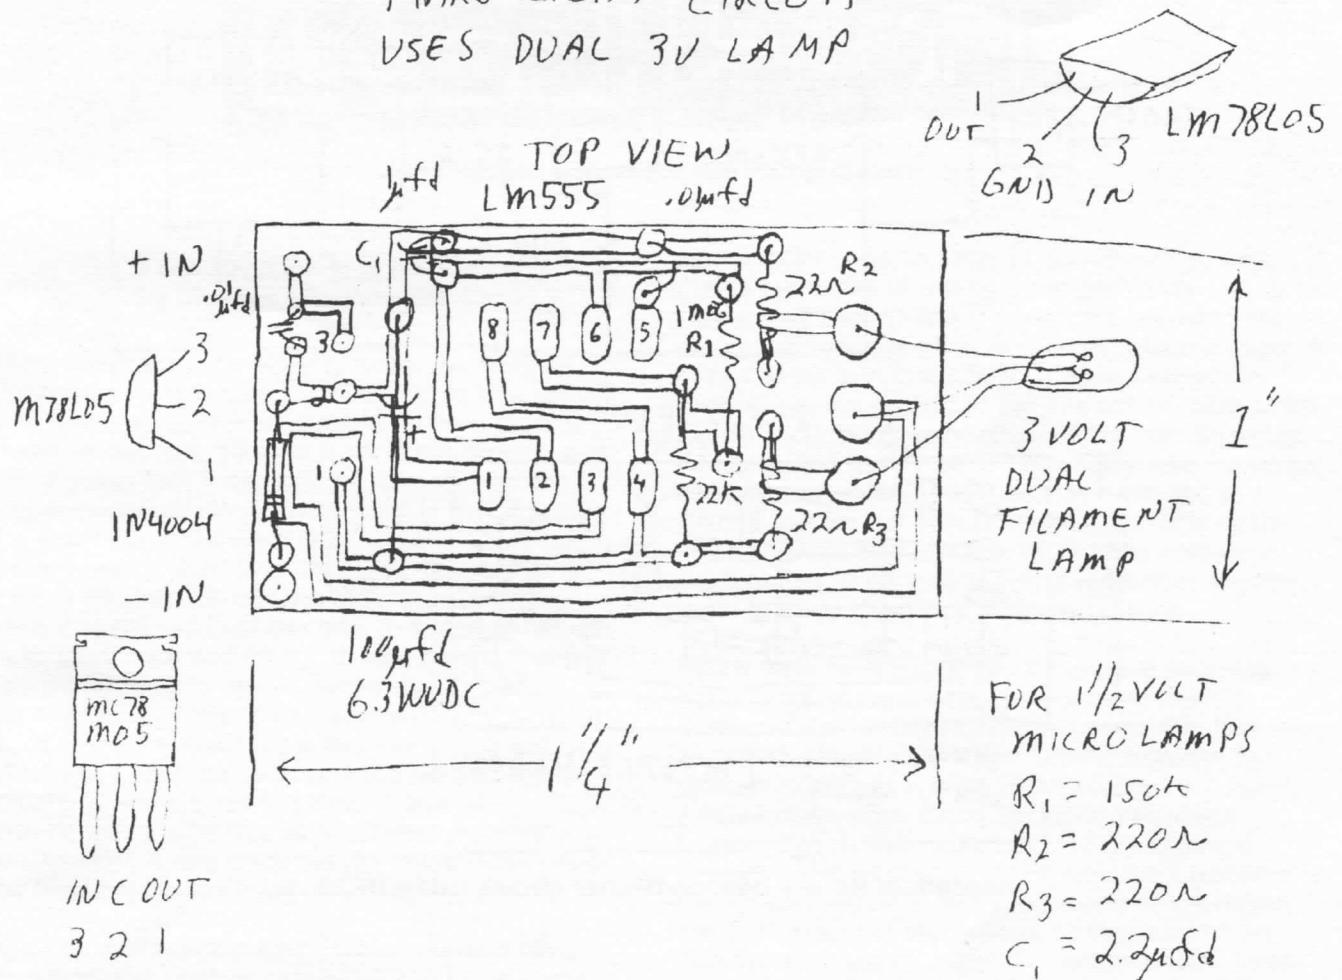 USES DUAL 3V LAMP
1
OUT
2
GND
3
IN
LM78L05
TOP VIEW
1µfd
LM555
.01µfd
+ IN
.01
µfd
C1
3
8
7
6
5
1meg
R1
22Ω
R2
M78L05
3
2
1
2
1
+
1
2
3
4
22K
22Ω R3
3 VOLT
DUAL
FILAMENT
LAMP
1"
1N4004
– IN
100µfd
6.3WVDC
1 1/4"
MC78
M05
IN C OUT
3 2 1
FOR 1 1/2 VOLT
MICRO LAMPS
R1 = 150K
R2 = 220Ω
R3 = 220Ω
C1 = 2.2µfd